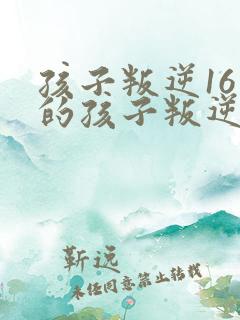 孩子叛逆16
的孩子叛逆
靳远
未经同意禁止转载